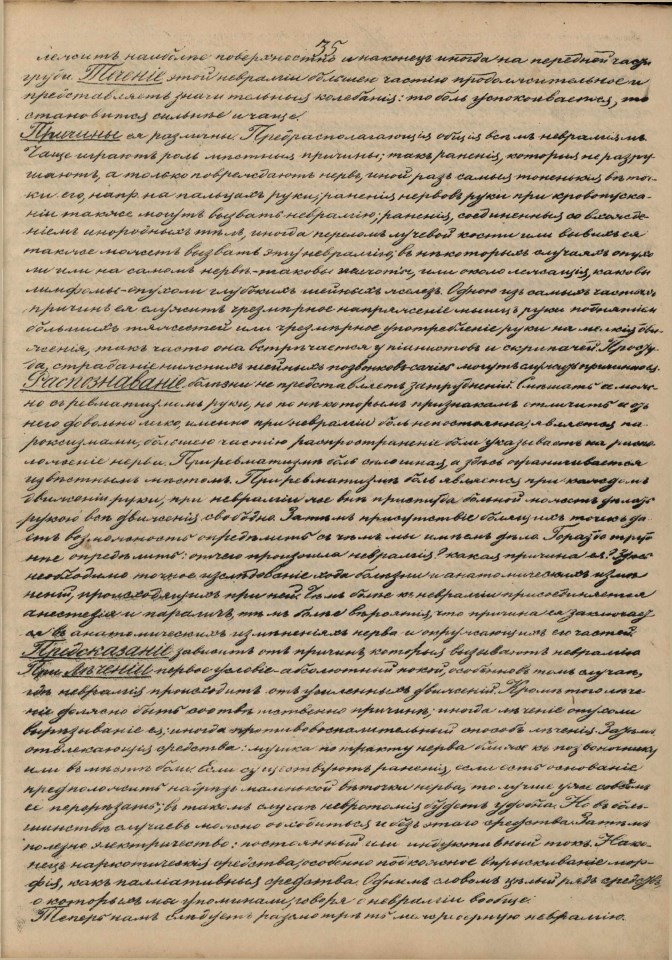 35
лежитъ наиболѣе поверхностно и наконецъ иногда на передней части
груди. Теченіе этой невралгіи большею частію продолжительное и
представляетъ значительныя колебанія: то боль успокоивается, то
становится сильнѣе и чаще.
Причины ея различны. Предрасполагающія общія всѣмъ невралгіямъ
Чаще играютъ роль мѣстныя причины; такъ раненія, которыя не разру-
шаютъ, а только повреждаютъ нервъ, иной разъ самыя тоненькія вѣточ-
ки его, напр. на пальцахъ руки; раненія нервовъ руки при кровопуска-
ніи также могутъ вызвать невралгію; раненія, соединенныя со вхожде-
ніемъ инородныхъ тѣлъ, иногда переломъ лучевой кости или вывихъ ея
также можетъ вызвать эту невралгію; въ нѣкоторыхъ случаяхъ опухо-
ли или на самомъ нервѣ - таковы или около лежащія, каковы
лимфомы - опухоли глубокихъ шейныхъ железъ. Одною изъ самыхъ частыхъ
причинъ ея служитъ чрезмѣрное напряженіе мышцъ руки поднятіемъ
большихъ тяжестей или чрезмѣрное употребленіе руки на мелкія дви-
женія, такъ часто она встрѣчается у піанистовъ и скрипачей. Просту-
да, страданіе нижнихъ шейныхъ позвонковъ могутъ служить причиною.
Распознаваніе болѣзни не представляетъ затрудненій. Смѣшать ее мож-
но съ ревматизмомъ руки, но по нѣкоторымъ признакамъ отличить отъ
него довольно легко, именно при невралгіи боль непостоянная, является па-
роксизмами, большею частію распространеніе боли указываетъ на распо-
ложеніе нерва. При ревматизмѣ боль сплошная, а здѣсь ограничивается
извѣстнымъ мѣстомъ. При ревматизмѣ боль является при каждомъ
движеніи руки, при невралгіи же внѣ приступа больной можетъ дѣлать
рукою всѣ движенія свободно. Затѣмъ присутствіе болящихъ точекъ да-
етъ возможность опредѣлить съ чѣмъ мы имѣемъ дѣло. Гораздо труд-
нѣе опредѣлить: отчего произошла невралгія? какая причина ея? Здѣсь
необходимо точное изслѣдованіе хода болѣзни и анатомическихъ измѣ-
неній, происходящихъ при ней. Чѣмъ болѣе къ невралгіи присоединяется
анестезія и параличъ, тѣмъ болѣе вѣроятія, что причина ея заключает-
ся въ анатомическихъ измѣненіяхъ нерва и окружающихъ его частей.
Предсказаніе зависитъ отъ причинъ, которыя вызываютъ невралгію
При Лѣченіи первое условіе - абсолютный покой, особливо въ томъ случаѣ,
гдѣ невралгія происходитъ отъ усиленныхъ движеній. Кромѣ того лѣче-
ніе должно быть соотвѣтственно причинѣ; иногда лѣченіе опухоли
вырѣзываніе ея; иногда противовоспалительный способъ лѣченія. Затѣмъ
отвлекающія средства: мушка по тракту нерва ближе къ позвоночнику
или въ мѣстѣ боли. Если существуютъ раненія, если есть основаніе
предположить надрѣзъ маленькой вѣточки нерва, то лучше уже совсѣмъ
ее перерѣзать; въ такомъ случаѣ невротомія будетъ удобна. Но въ боль-
шинствѣ случаевъ можно обходиться и безъ этого средства. Затѣмъ
полезно электричество: постоянный или индуктивный токъ. Нако-
нецъ наркотическія средства, особенно подкожное впрыскиваніе мор-
фія, какъ палліативныя средства. Однимъ словомъ цѣлый рядъ средствъ
о которыхъ мы упоминали, говоря о невралгіи вообще.
Теперь намъ слѣдуетъ разсмотрѣть межреберную невралгію.